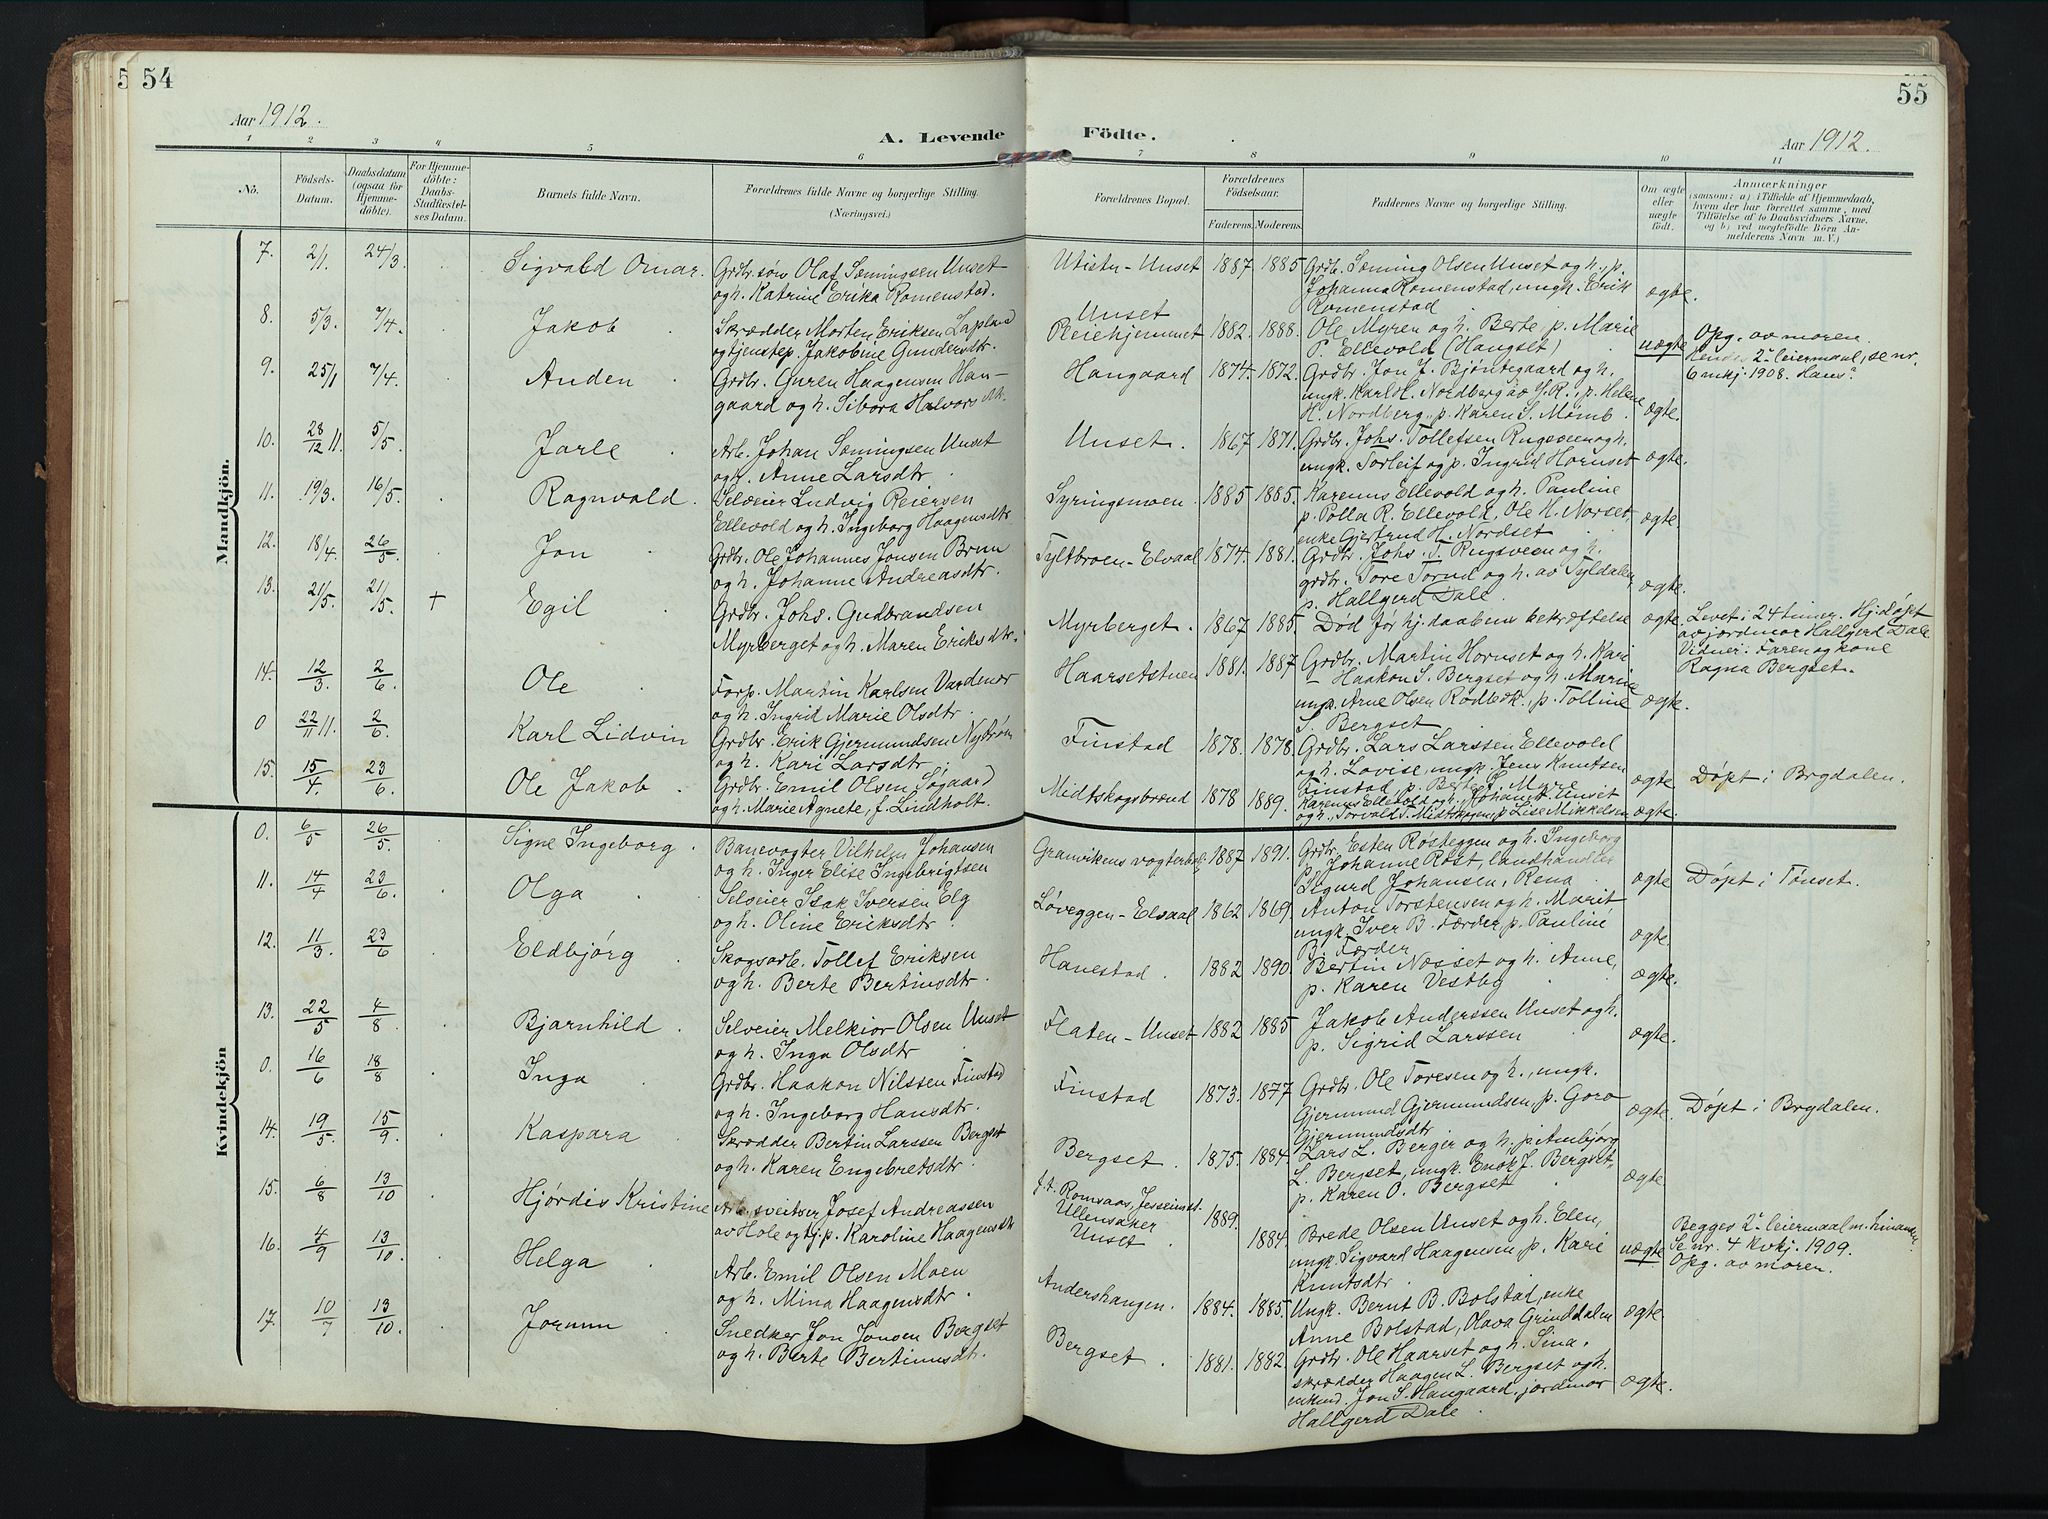 54
Aar 1912.
A. Levende
1 2 3 4 5 6
No.
Födsels-
Datum.
Daabsdatum
(ogsaa for
Hjemme-
döbte).
For Hjemme-
döbte:
Daabs-
Stadfæstel-
ses Datum.
Barnets fulde Navn.
Forældrenes fulde Navne og borgerlige Stilling.
(Næringsvei.)
Mandkjön.
7. 2/1. 24/3. Sigvald Omar. Grdbr.søn Olaf Sæmingsen Unset
og h. Katrine Erika Romenstad.
8. 5/3. 7/4. Jakob Skrædder Morten Eriksen Lapland
og tjenstep. Jakobine Gundersdtr.
9. 25/1 7/4. Anden Grdbr. Guren Haagensen Han-
gaard og h. Sibora Halvorsdtr.
10. 28/12 11. 5/5 Jarle Arb. Johan Sæmingsen Unset
og h. Anne Larsdtr
11. 19/3. 16/5. Ragnvald. Selveier Ludvig Reiersen
Ellevold og h. Ingeborg Haagensdtr
12. 18/4. 26/5. Jon Grdbr. Ole Johannes Jonsen Brun
og h. Johanne Andreasdtr.
13. 21/5. 21/5. + Egil Grdbr. Johs. Gudbrandsen
Myrberget og h. Maren Eriksdtr.
14. 12/3. 2/6. Ole Forp. Martin Karlsen Vardenær
og h. Ingrid Marie Olsdtr.
0 22/11 11. 2/6. Karl Lidvin Grdbr. Erik Gjermundsen Nybrøn
og h. Kari Larsdtr.
15. 15/4. 23/6. Ole Jakob Grdbr. Emil Olsen Søgaard
og h. Marie Agnete, f. Lindholt.
Kvindekjön
0. 6/5 26/5. Signe Ingeborg. Banevogter Vilhelm Johansen
og h. Inger Elise Ingebrigtsen
11. 14/4 23/6. Olga Selveier Isak Iversen Elg
og h. Oline Eriksdtr.
12. 11/3. 23/6 Eldbjørg Skogsarb. Tollef Eriksen
og h. Berte Bertinsdtr.
13. 22/5 4/8 Bjarnhild Selveier Melkior Olsen Unset
og h. Inga Olsdtr
0. 16/6 18/8 Inga Grdbr. Haakon Nilssen Finstad
og h. Ingeborg Hansdtr.
14. 19/5. 15/9. Kaspara Skrædder Bertin Larssen Bergset
og h. Karen Engebretsdtr.
15. 6/8 13/10 Hjørdis Kristine Arb. sveitser Josef Andreassen
av Hole og tj. p. Karoline Haagensdtr
16. 4/9 13/10. Helga Arb. Emil Olsen Moen
og h. Mina Haagensdtr.
17. 10/7 13/10. Jorunn Snedker Jon Jonsen Bergset
og h. Berte Bertinusdtr.
55
Aar 1912.
Födte.
7 8 9 10 11
Forældrenes Bopæl.
Forældrenes
Födselsaar.
Faderens. Moderens.
Faddernes Navne og borgerlige Stilling.
Om ægte
eller
uægte
födt.
Anmærkninger
(saasom: a) i Tilfælde af Hjemmedaab,
hvem der har forrettet samme, med
Tilföielse af to Daabsvidners Navne.
og b) ved uægtefödte Börn An-
melderens Navn m. V.)
Utistu-Unset 1887 1885 Grdb. Sæming Olsen Unset og h., p.
Johanna Romenstad, ungk. Erik
Romenstad ægte.
Unset
Pleiehjemmet 1882. 1888. Ole Myren og h. Berte, p. Marie
P. Ellevold (Hangset) uægte Opg. av moren.
Hendes 2. leiermaal, se nr.
6 mkj. 1908. Hans
Hangaard 1874. 1872. Grdbr. Jon J. Bjøntegaard og h.
ungk. Karl H. Nordberg av Y. R., p. Helene
H. Nordberg, p. Karen S. Mømb. ægte.
Unset. 1867 1871. Grdbr. Johs. Tollefsen Rugsveen og h.
ungk. Torleif og p. Ingrid Hornset ægte.
Syringsmoen 1885 1885. Karenus Ellevold og h. Pauline
p. Polla R. Ellevold, Ole H. Norset,
enke Gjertrud H. Nordset ægte.
Tyltbroen-Elvaal 1874. 1881. Grdbr. Johs. T. Rugsveen og h.
grdbr. Tore Torud og h. av Tyldalen,
p. Hallgerd Dale. ægte.
Myrberget. 1867 1885. Død før hj.daabens bekræftelse ægte. Levet i 24 timer. Hj.døpt
av jordmor Hallgerd Dale
Vidner: Faren og kone
Ragna Bergset.
Haarsetstuen 1881. 1887 Grdbr. Martin Hornset og h. Kari
Haakon S. Bergset og h. Marine
ungk. Arne Olsen Rødbæk, p. Tolline
S. Bergset ægte.
Finstad 1878. 1878. Grdbr. Lars Larssen Ellevold
og h. Lovise, ungk. Jens Knutsen
Finstad, p. Berte T. Myre ægte Døpt i Brydalen.
Midtskogsbrænd 1878 1889. Karenus Ellevold og h., Johan T. Unset
og h., Torvald T. Midtskogen, p. Lise Mikkelsen ægte.
Granvikens vogterbol. 1887 1891. Grdbr. Esten Røsteggen og h. Ingeborg
p. Johanne Røst, landhandler
Sigurd Johansen, Rena ægte Døpt i Tønset.
Løveggen-Elvaal 1862 1869 Anton Torstensen og h. Marit
ungk. Iver B. Færder, p. Pauline
B. Færder ægte.
Hanestad. 1882 1890. Bertin Næsset og h. Anne,
p. Karen Vestby ægte.
Flaten-Unset 1882 1885 Jakob Anderssen Unset og h.
p. Sigrid Larssen ægte.
Finstad 1873. 1877 Grdbr. Ole Toresen og h., ungk.
Gjermund Gjermundsen, p. Goro
Gjermundsdtr ægte. Døpt i Brydalen.
Bergset. 1875. 1884. Lars L. Berger og h., p. Ambjørg
L. Bergset, ungk. Enok J. Bergset,
p. Karen O. Bergset ægte
f. t. Romsaas, Jesseimst.
Ullensaker
Unset 1889. 1884. Brede Olsen Unset og h. Elen,
ungk. Sigvard Haagensen, p. Kari
Knutsdtr. uægte Begges 2. leiermaal m. hinanden
Se nr. 4 kvkj. 1909.
Opg. av moren.
Andershangen. 1884. 1885. Ungk. Bernt B. Bolstad, enke
Anne Bolstad, Olava Grinddalen ægte.
Bergset. 1881. 1882 Grdbr. Ole Haarset og h. Sina,
skrædder Haagen L. Bergset og h.
enkend. Jon S. Hangaard, jordmor
Hallgerd Dale. ægte.